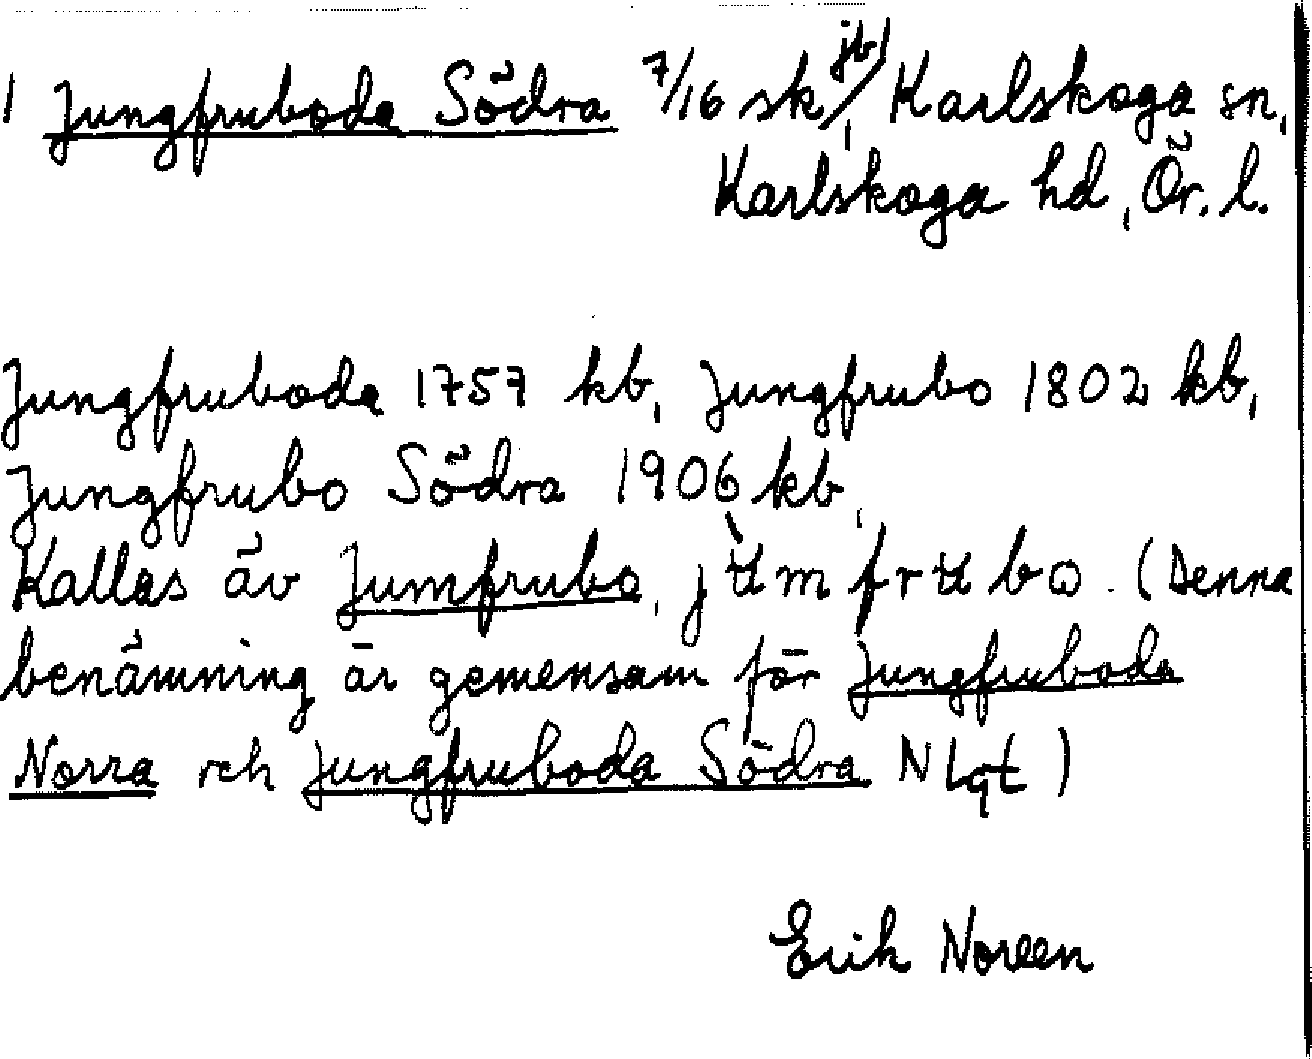 1 Jungfruboda Södra 7/16 sk, jb, Karlskoga sn,
Karlskoga hd, Ör. l.
Jungfruboda 1757 kb, Jungfrubo 1802 kb,
Jungfrubo Södra 1906 kb.
Kallas äv Jumfrubo, jʉ̀mfrʉbo. (Denna
benämning är gemensam för Jungfruboda
Norra och Jungfruboda Södra N Lgt)
Erik Noreen